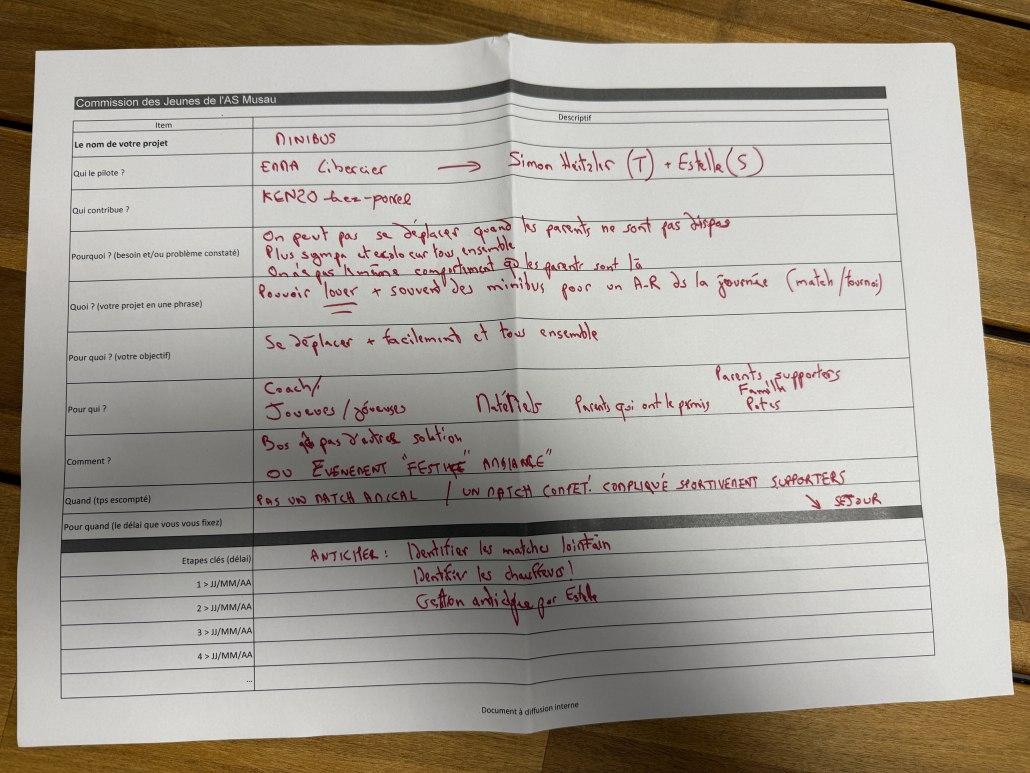 Commission des Jeunes de l'AS Musau
Item Descriptif
Le nom de votre projet MINIBUS
Qui le pilote ? EMMA Libercier → Simon Heitzler (T) + Estelle (S)
Qui contribue ? KENZO
Pourquoi ? (besoin et/ou problème constaté) On peut pas se déplacer quand les parents ne sont pas dispos
Plus sympa et explo eur tous ensemble
On a pas le même comportement qd les parents sont là
Quoi ? (votre projet en une phrase) Pouvoir louer + souvent des minibus pour un A-R ds la journée (match/tournoi)
Pour quoi ? (votre objectif) Se déplacer + facilement et tous ensemble
Pour qui ? Coach/
Joueurs / joueuses Matériels Parents qui ont le permis
Parents supporters
Famille
Potes
Comment ? pas d'autres solution
OU ÉVÉNEMENT "FESTIF" AMBIANCE"
Quand (tps escompté) PAS UN MATCH AMICAL / UN MATCH COMPET. COMPLIQUÉ SPORTIVEMENT SUPPORTERS
→ SEJOUR
Pour quand (le délai que vous vous fixez)
Etapes clés (délai) ANTICIPER : Identifier les matches lointain
1 > JJ/MM/AA Identifier les chauffeurs !
2 > JJ/MM/AA Gestion par Estelle
3 > JJ/MM/AA
4 > JJ/MM/AA
...
Document à diffusion interne